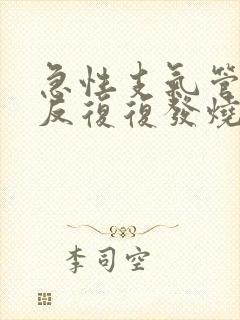 急性支氣管
反復復發燒
李司空